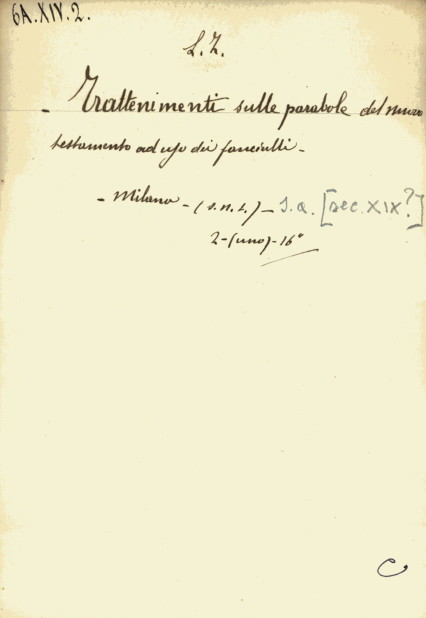 6A.XIV.2.
L. Z.
- Trattenimenti sulle parabole del nuovo
testamento ad uso dei fanciulli -
- Milano - (s. n. t.) - s.a. [sec. XIX?]
2 - (uno) - 16°
C